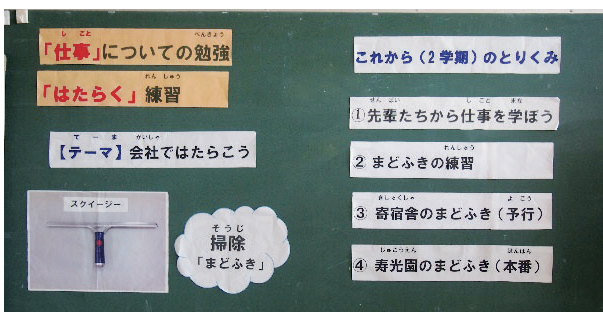 「仕事」についての勉強
「はたらく」練習
【テーマ】会社ではたらこう
スクイージー
掃除
「まどふき」
これから（2学期）のとりくみ
①先輩たちから仕事を学ぼう
②まどふきの練習
③寄宿舎のまどふき（予行）
④寿光園のまどふき（本番）